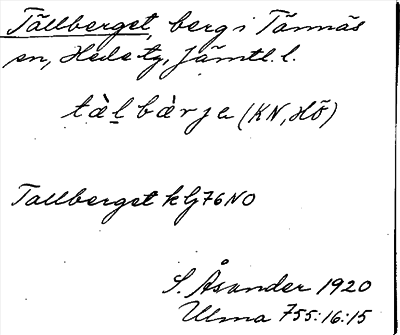 Tällberget, berg i Tännäs
sn, Hede tg, Jämtl. l.
tàl̠bàrje (KN, Hö)
Tallberget k bj 76 NO
S. Åsander 1920
Ulma 755:16:15